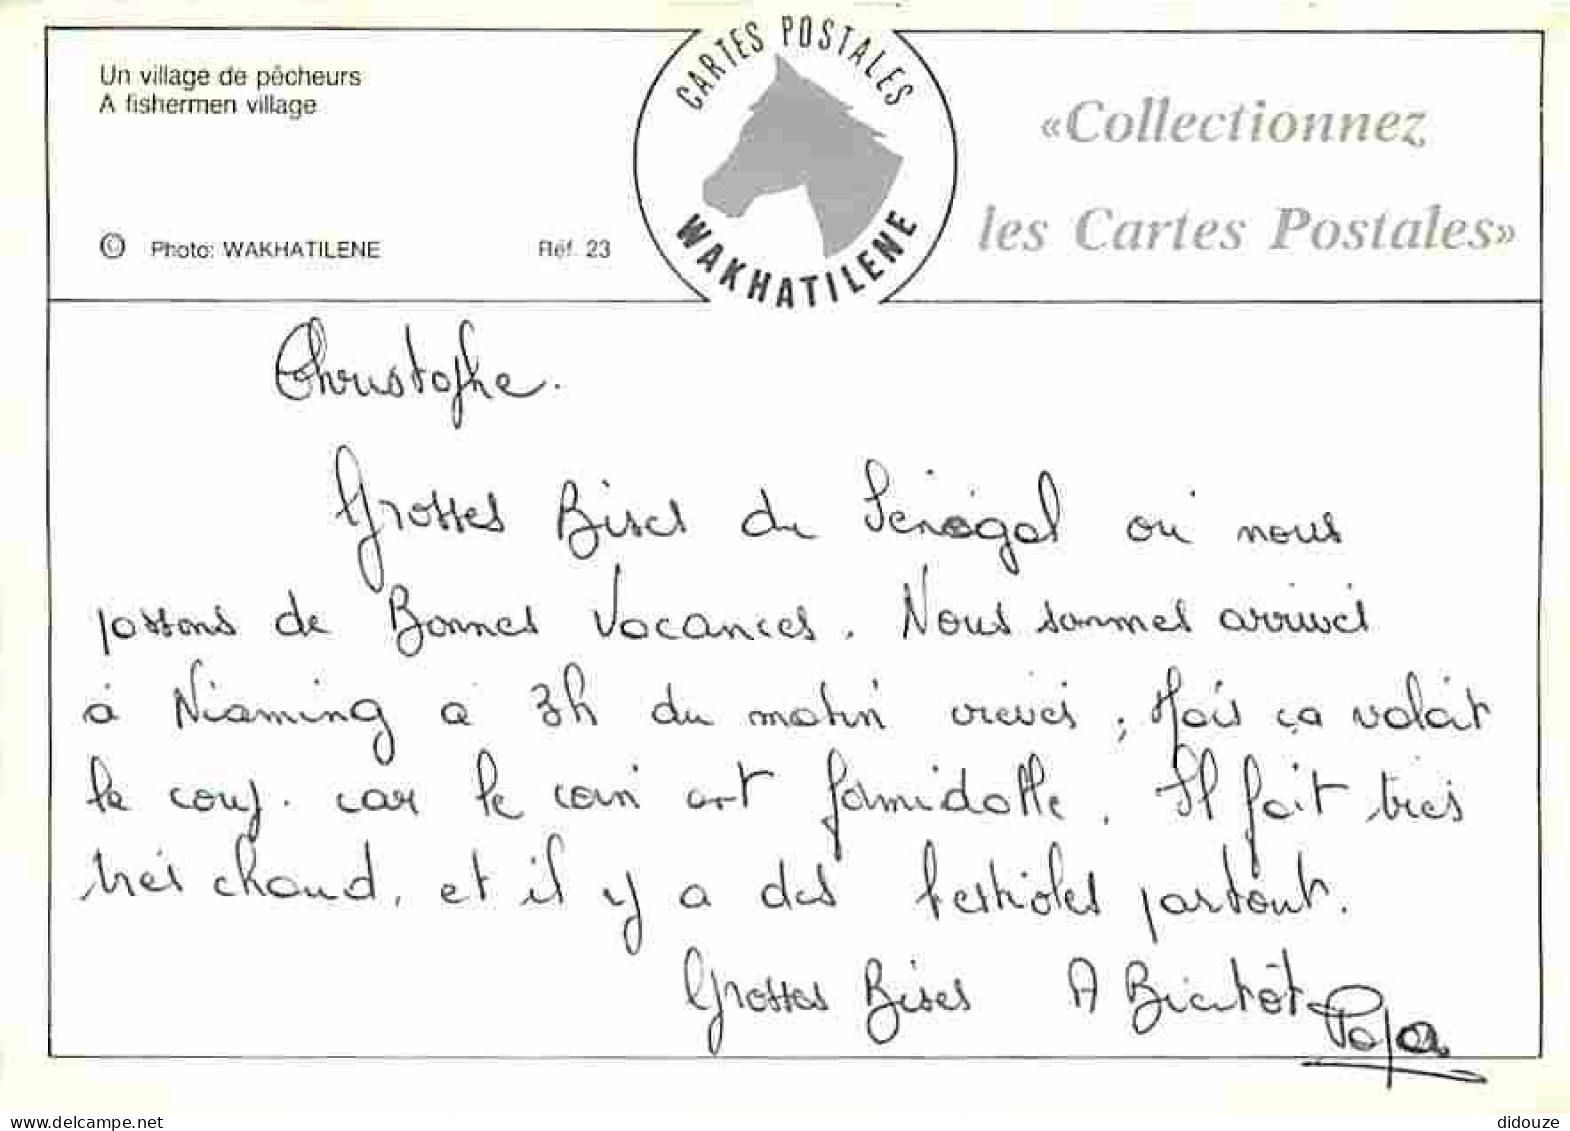 Un village de pêcheurs
A fishermen village
© Photo: WAKHATILENE Réf. 23
CARTES POSTALES
WAKHATILENE
«Collectionnez
les Cartes Postales»
Christophe.
Grosses Bises du Sénégal où nous
passons de Bonnes Vacances. Nous sommes arrivés
à Nianing à 3h du matin crevés, Mais ça valait
le coup. car le coin est formidable. Il fait très
très chaud, et il y a des bestioles partout.
Grosses Bises A Bientôt
Papa
delcampe.net
didouze